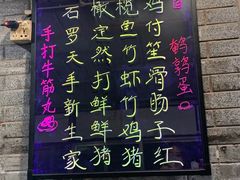 石橄榄鸡
罗定鱼付
天然竹笙
手打虾滑
新鲜竹肠
生鲜鸡子
家猪猪红
手打牛筋丸
鹌鹑蛋